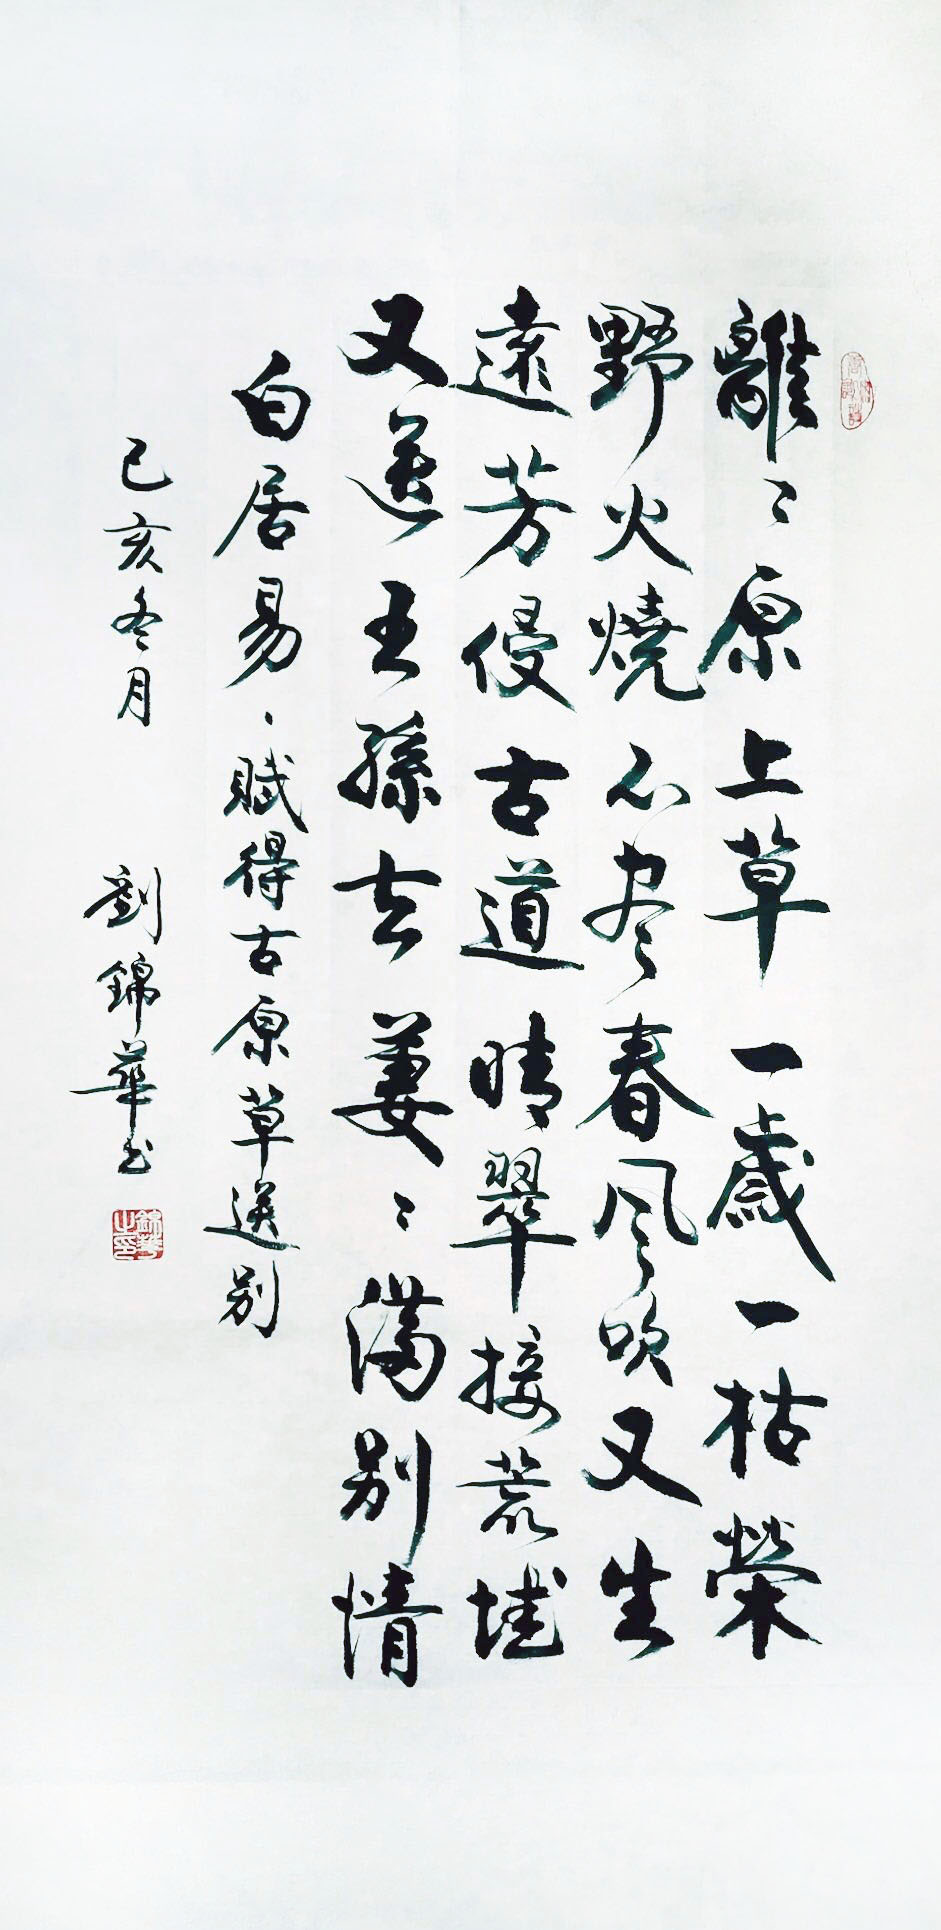 離〻原上草一歲一枯榮
野火燒不尽春风吹又生
遠芳侵古道晴翠接荒城
又送王孫去萋〻滿别情
白居易、賦得古原草送别
己亥冬月 劉錦華书
錦華之印